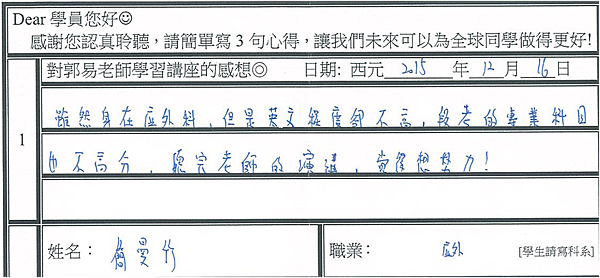 Dear 學員您好☺
感謝您認真聆聽,請簡單寫 3 句心得,讓我們未來可以為全球同學做得更好!
對郭易老師學習講座的感想◎ 日期: 西元 2015 年 12 月 16 日
1
雖然身在應外科,但是英文程度卻不高,段考的專業科目
也不高分,聽完老師的演講,覺得想努力!
姓名: 簡曼竹 職業: 應外 [學生請寫科系]